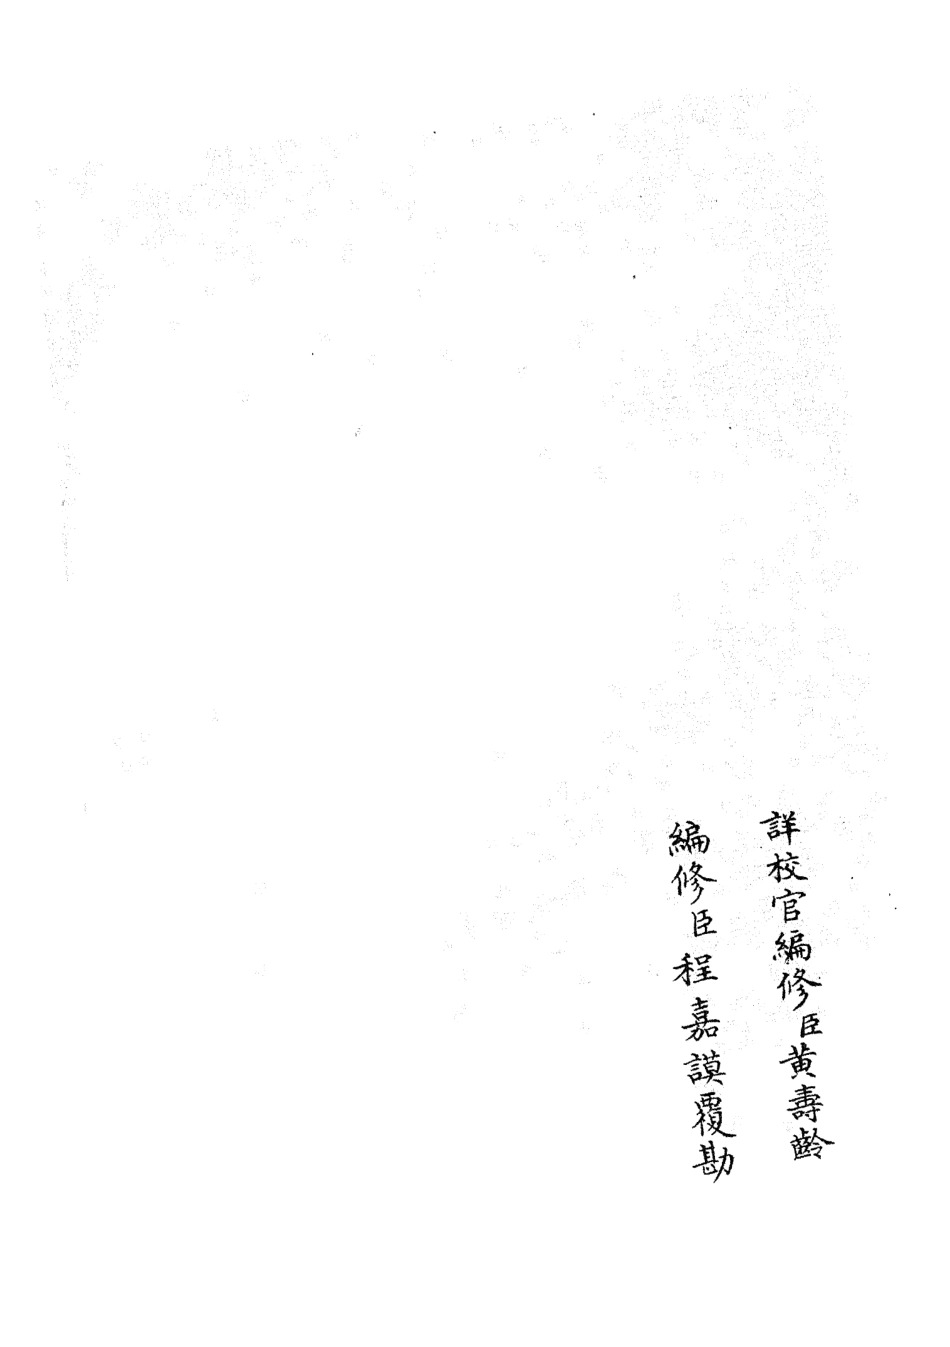 詳校官編修臣黄壽齡
編修臣程嘉謨覆勘